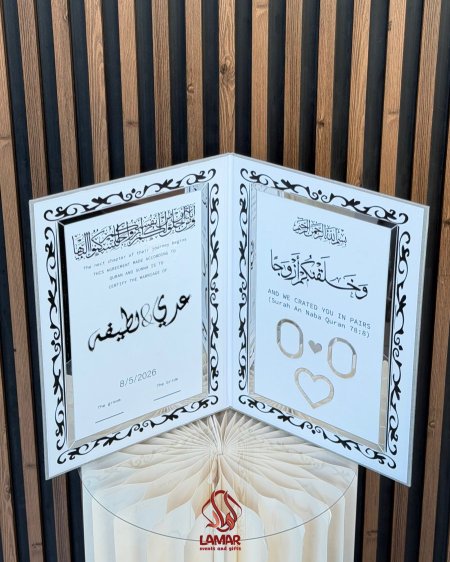 The next chapter of their journey begins
THIS AGREEMENT MADE ACCORDING TO
QURAN AND SUNNA IS TO
CERTIFY THE MARRIAGE OF
عدي & لطيفه
8/5/2026
The groom
The bride
بسم الله الرحمن الرحيم
وَخَلَقْنَاكُمْ أَزْوَاجًا
AND WE CRATED YOU IN PAIRS
(Surah An Naba Quran 78:8)
LAMAR
events and gifts